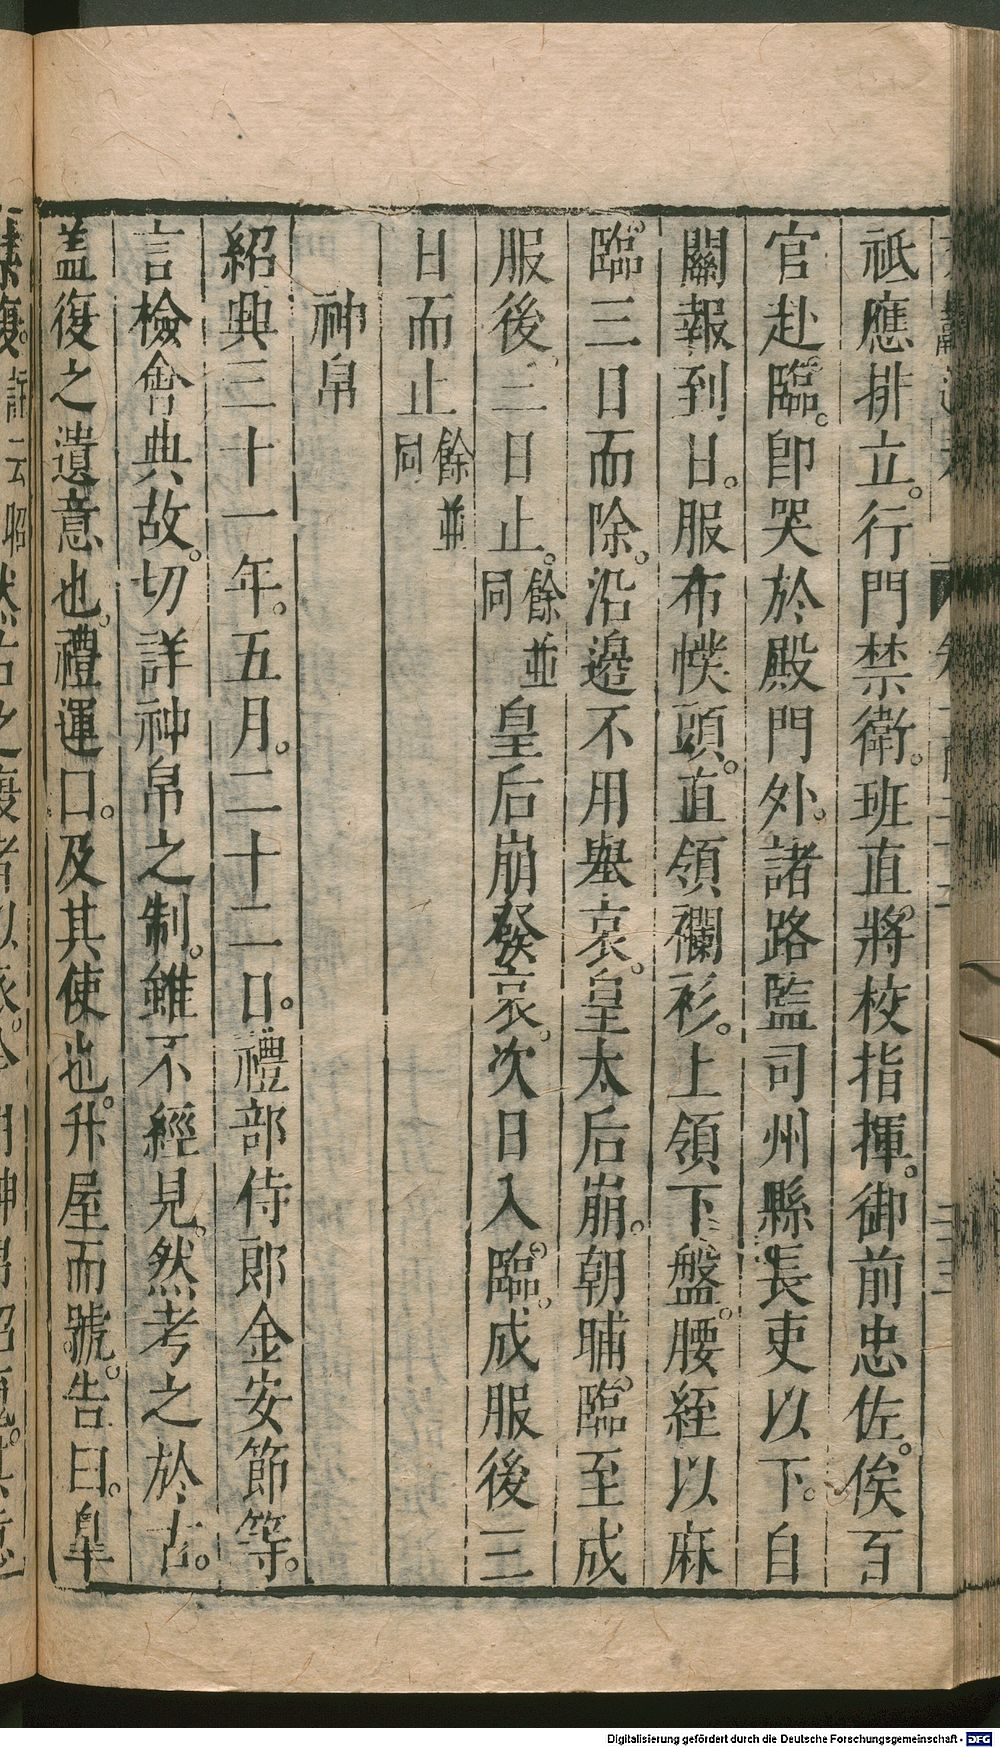 祗應排立。行門禁衛。班直將校指揮。御前忠佐。俟百
官赴臨。卽哭於殿門外。諸路監司州縣長吏以下。自
關報到日。服布幞頭。直領襴衫。上領下盤。腰絰以麻
臨三日而除。沿邊不用舉哀。皇太后崩。朝晡臨至成
服後三日止。餘並同皇后崩發哀。次日入臨。成服後三
日而止餘並同
神帛
紹興三十一年。五月。二十二日。禮部侍郎金安節等。
言檢會典故。切詳神帛之制。雖不經見。然考之於古。
盖復之遺意也。禮運曰。及其使也。升屋而號。告曰。臯
Digitalisierung gefördert durch die Deutsche Forschungsgemeinschaft - DFG